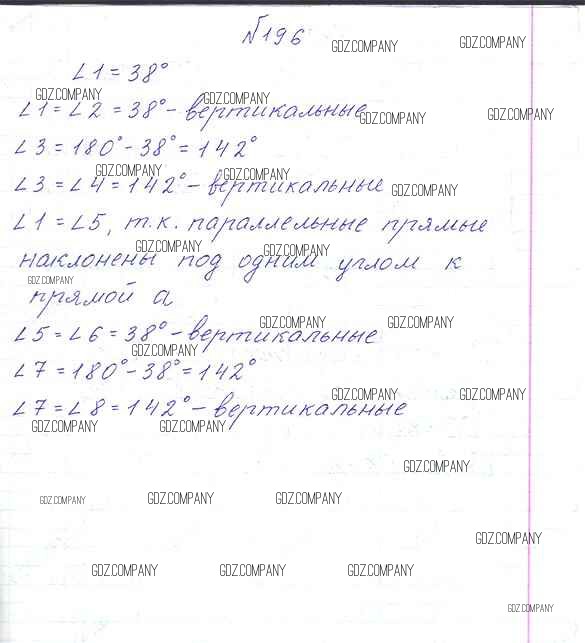 №196
∠1 = 38°
∠1 = ∠2 = 38° - вертикальные
∠3 = 180° - 38° = 142°
∠3 = ∠4 = 142° - вертикальные
∠1 = ∠5, т.к. параллельные прямые
наклонены под одним углом к
прямой а
∠5 = ∠6 = 38° - вертикальные
∠7 = 180° - 38° = 142°
∠7 = ∠8 = 142° - вертикальные
GDZ.COMPANY GDZ.COMPANY
GDZ.COMPANY GDZ.COMPANY
GDZ.COMPANY GDZ.COMPANY
GDZ.COMPANY GDZ.COMPANY
GDZ.COMPANY
GDZ.COMPANY GDZ.COMPANY
GDZ.COMPANY
GDZ.COMPANY GDZ.COMPANY
GDZ.COMPANY
GDZ.COMPANY GDZ.COMPANY
GDZ.COMPANY GDZ.COMPANY
GDZ.COMPANY
GDZ.COMPANY GDZ.COMPANY GDZ.COMPANY
GDZ.COMPANY
GDZ.COMPANY GDZ.COMPANY GDZ.COMPANY
GDZ.COMPANY